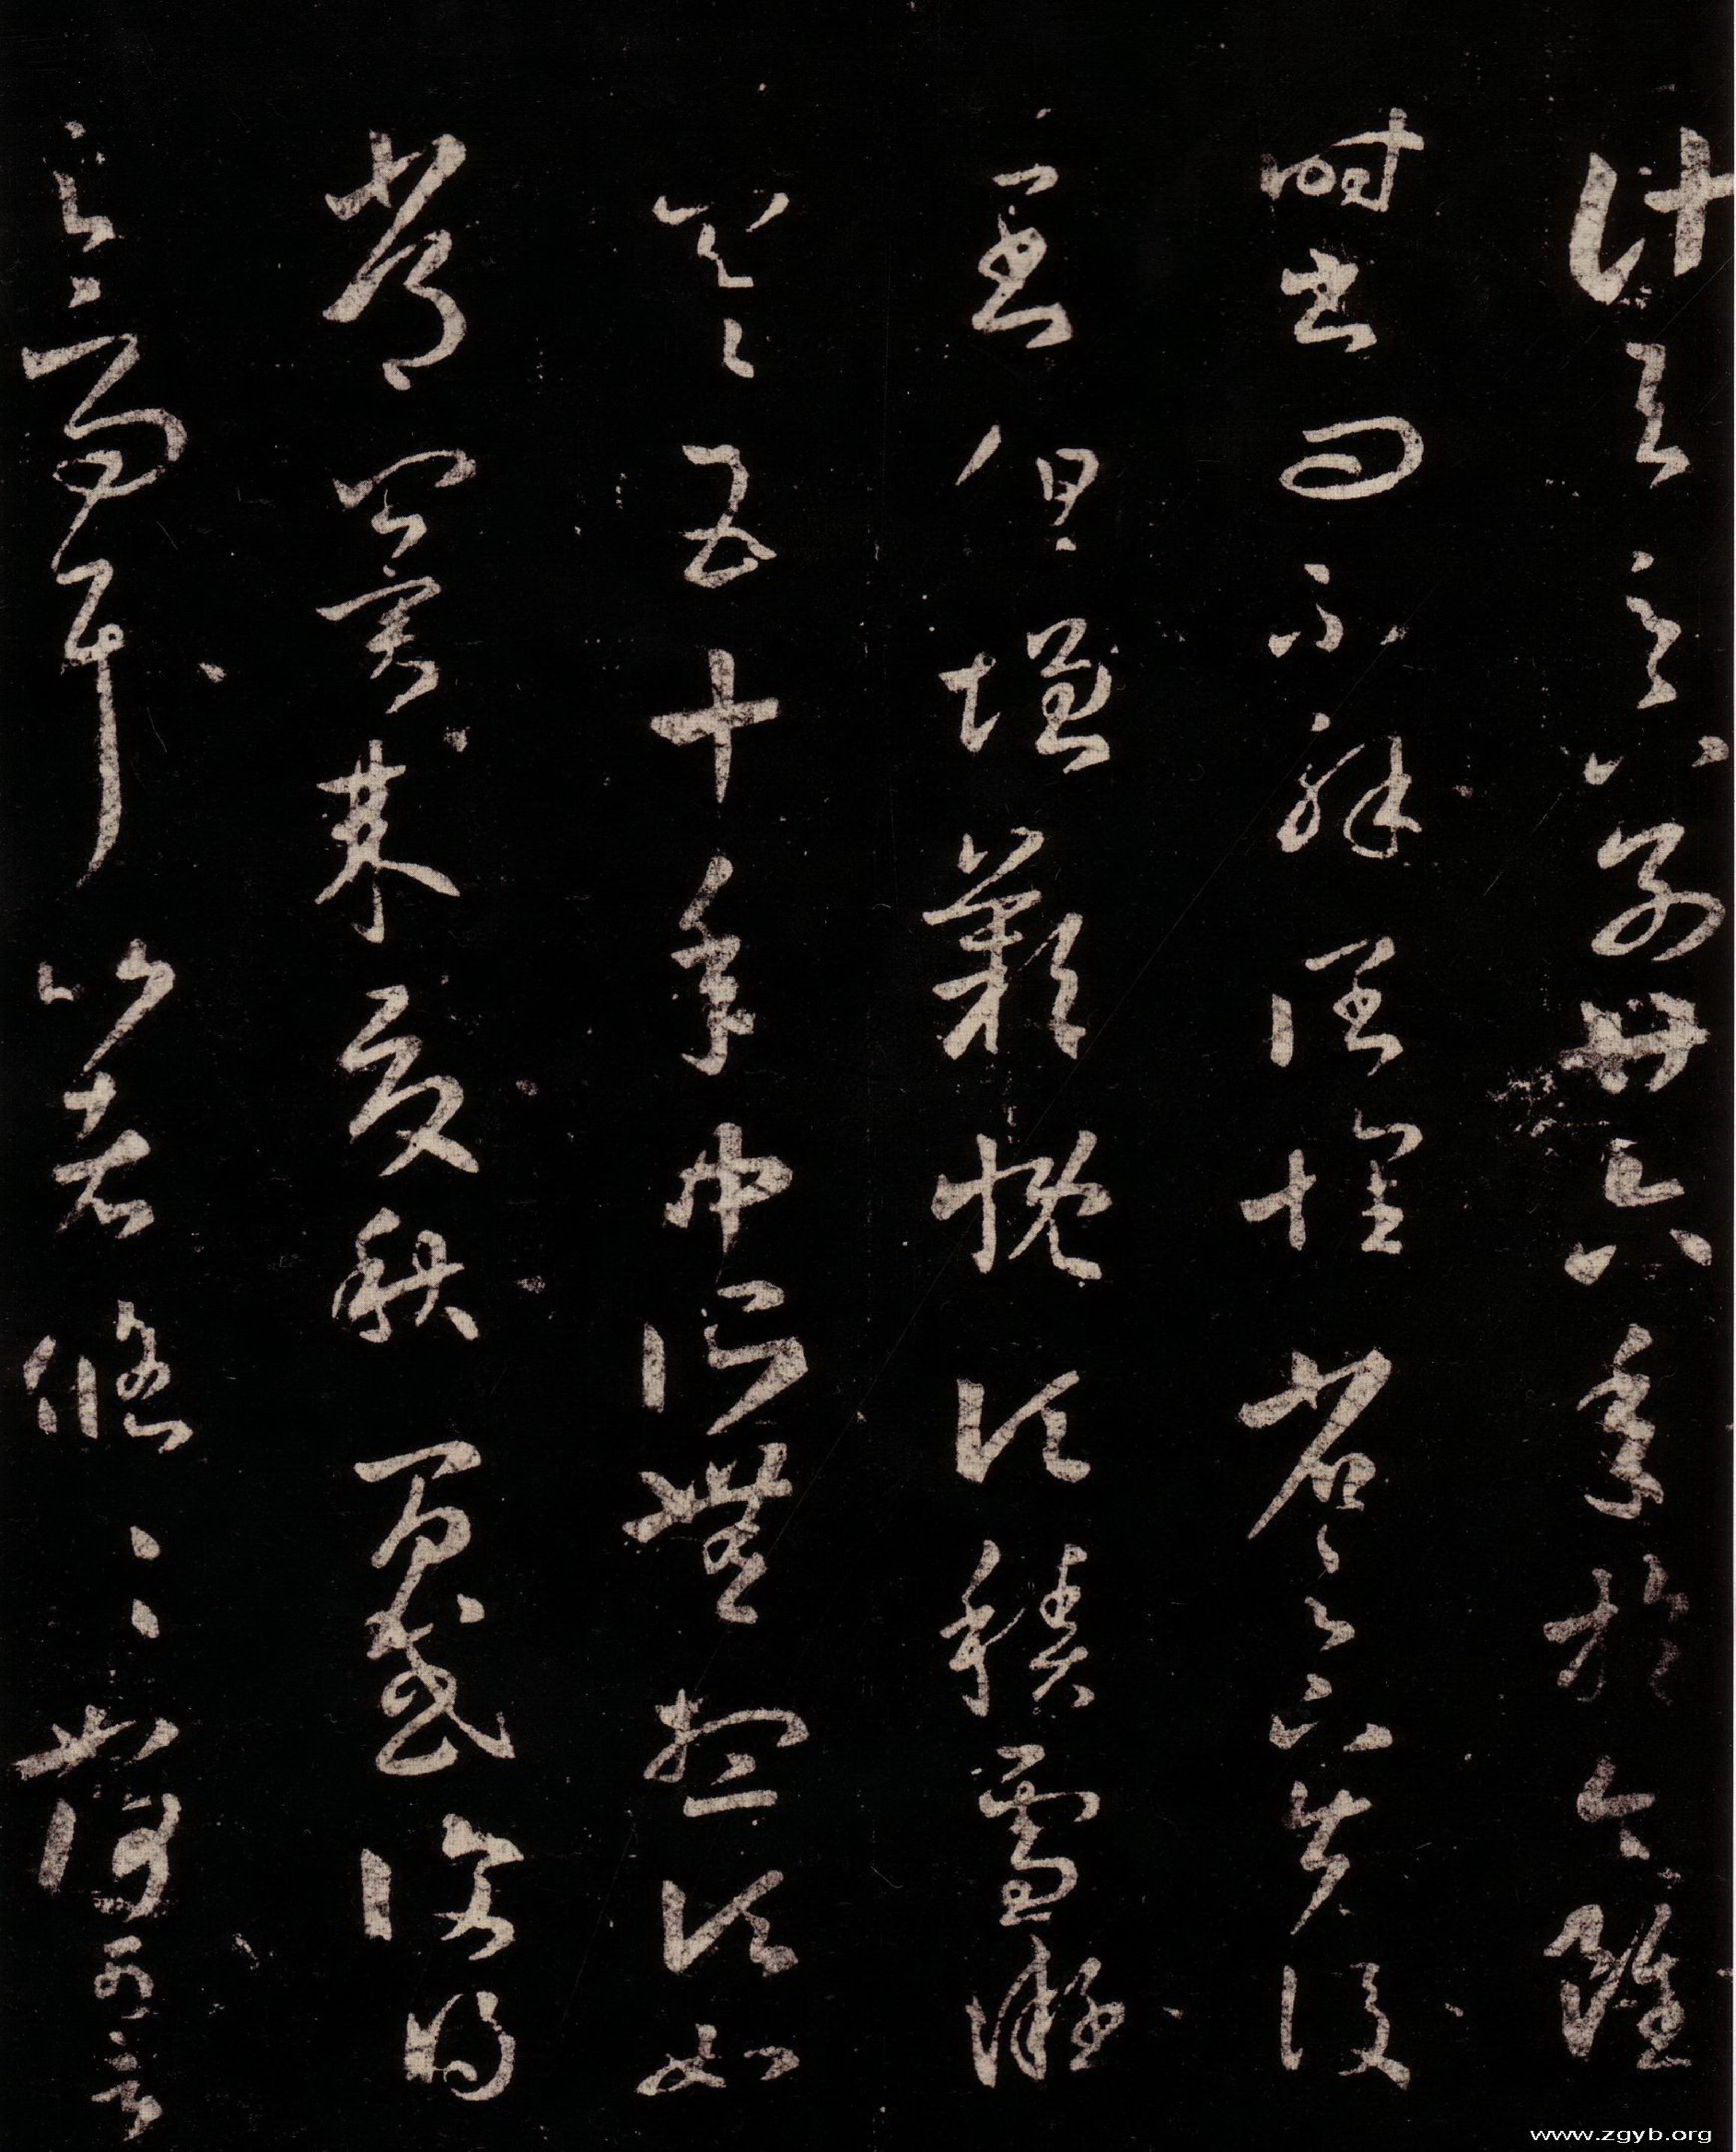 計與足下別廿六年於今雖
時書問不解闊懷省足下先後
二書但增歎慨頃積雪凝
寒五十年中所無想頃如
常冀來夏秋間或復得
足下問耳比者悠悠如何可言
www.zgyb.org